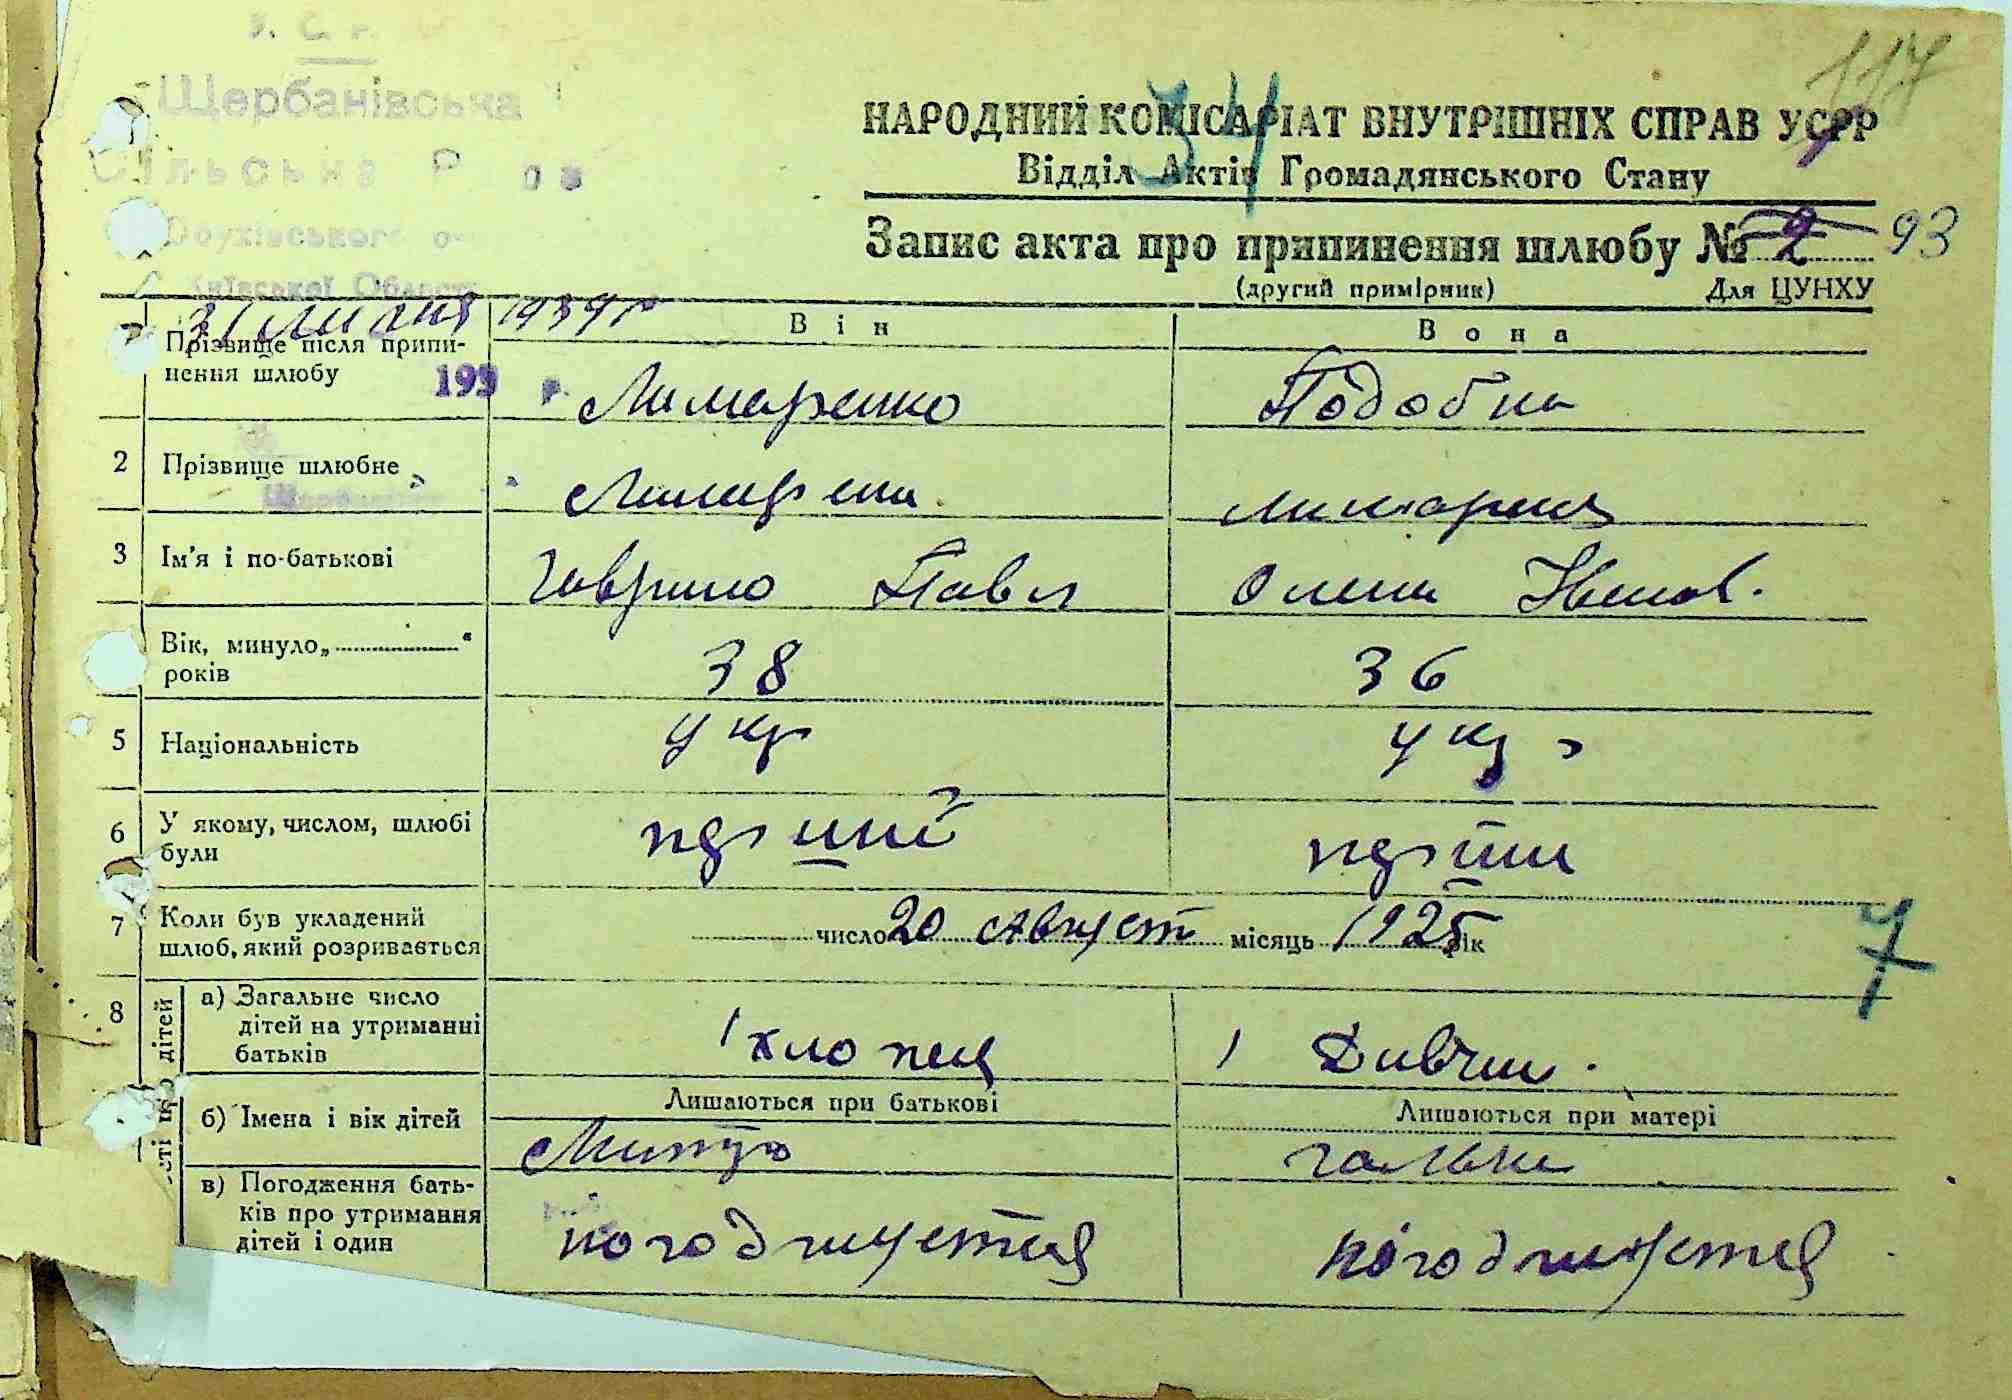 У. С. Р.
Щербанівська
Сільська Рада
Київської Області
117
34
НАРОДНИЙ КОМІСАРІАТ ВНУТРІШНІХ СПРАВ УСРР
Відділ Актів Громадянського Стану
Запис акта про припинення шлюбу № 2 93
(другий примірник) Для ЦУНХУ
31 липня 1934 г
Він Вона
Прізвище після припи-
нення шлюбу
193 р. Лимаренко Подобна
2 Прізвище шлюбне Лимаренк Лимаренк
3 Ім'я і по-батькові Гаврило Павл Олена Іванов.
Вік, минуло „ “
років 38 36
5 Національність укр укр
6 У якому, числом, шлюбі
були перший перший
7 Коли був укладений
шлюб, який розривається
число 20 Август місяць 1925 рік
7
8 а) Загальне число
дітей на утриманні
батьків
1 хлопец 1 Дивчин.
Лишаються при батькові Лишаються при матері
б) Імена і вік дітей
Галька
в) Погодження бать-
ків про утримання
дітей і один